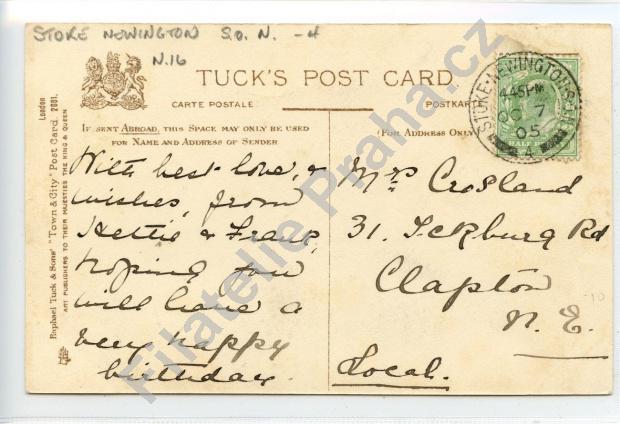 STOKE NEWINGTON S.O. N. -4
N.16
TUCK'S POST CARD
CARTE POSTALE
POSTKARTE
IF SENT ABROAD, THIS SPACE MAY ONLY BE USED
FOR NAME AND ADDRESS OF SENDER
(FOR ADDRESS ONLY)
Raphael Tuck & Sons' "Town & City" Post Card 2001.
London
ART PUBLISHERS TO THEIR MAJESTIES THE KING & QUEEN
With best love, &
wishes, from
Hettie & Frank,
hoping you
will have a
very happy
birthday.
Mrs Crosland
31. Ickburg Rd
Clapton
N. E.
Local.
STOKE-NEWINGTON
4 45 PM
OC 7
05
4
HALF
Filatelie Praha.cz